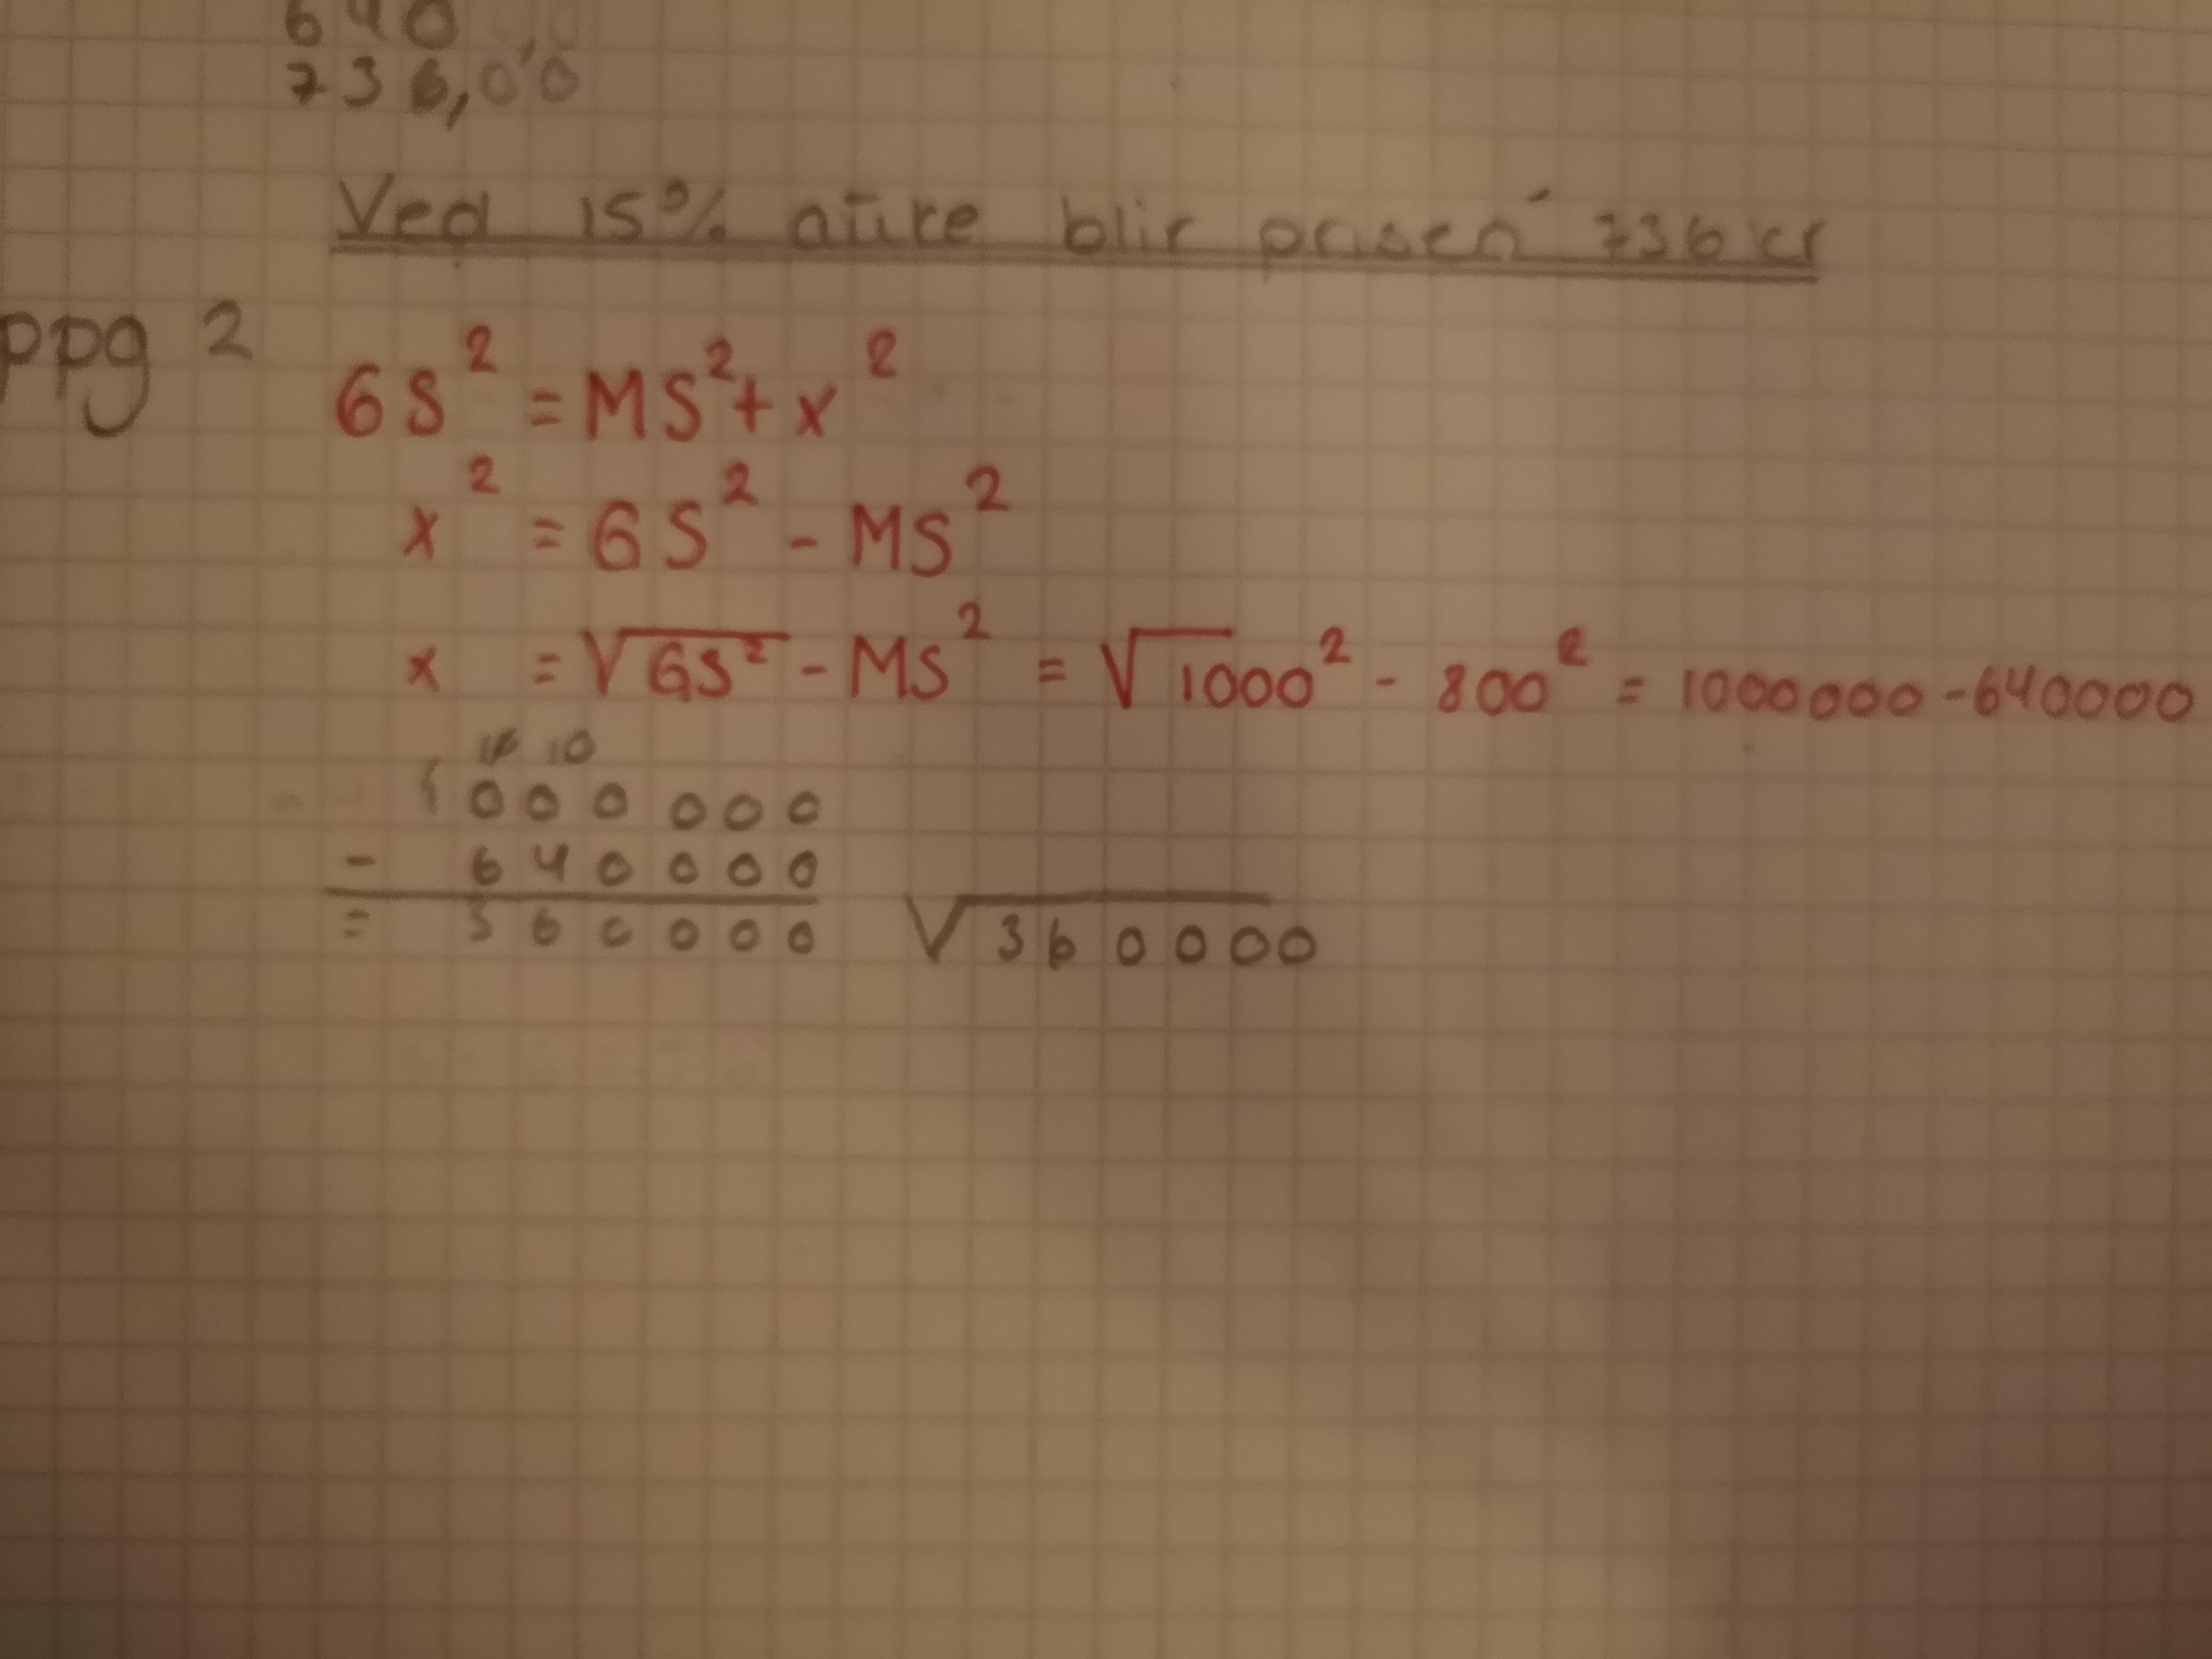 640
736,00
Ved 15% øker blir prisen 736 kr
ppg 2
GS² = MS² + x²
x² = GS² - MS²
x = √GS² - MS² = √1000² - 800² = 1000000 - 640000
10 10
1000000
- 640000
= 360000 √360000